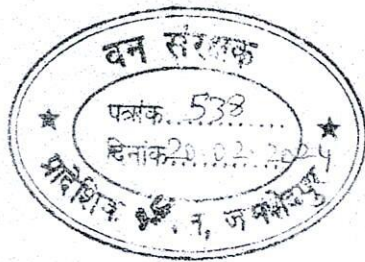 वन संरक्षक
पत्रांक..538..........
दिनांक 20.02.2024
प्रादेशिक न, जमशेदपुर